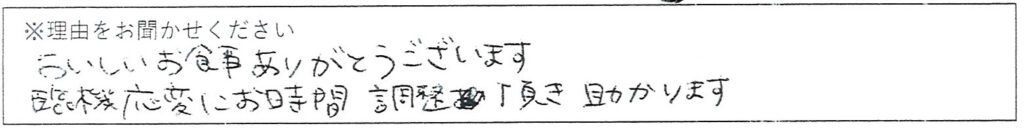 ※理由をお聞かせください
おいしいお食事ありがとうございます
臨機応変にお時間 調整 頂き 助かります